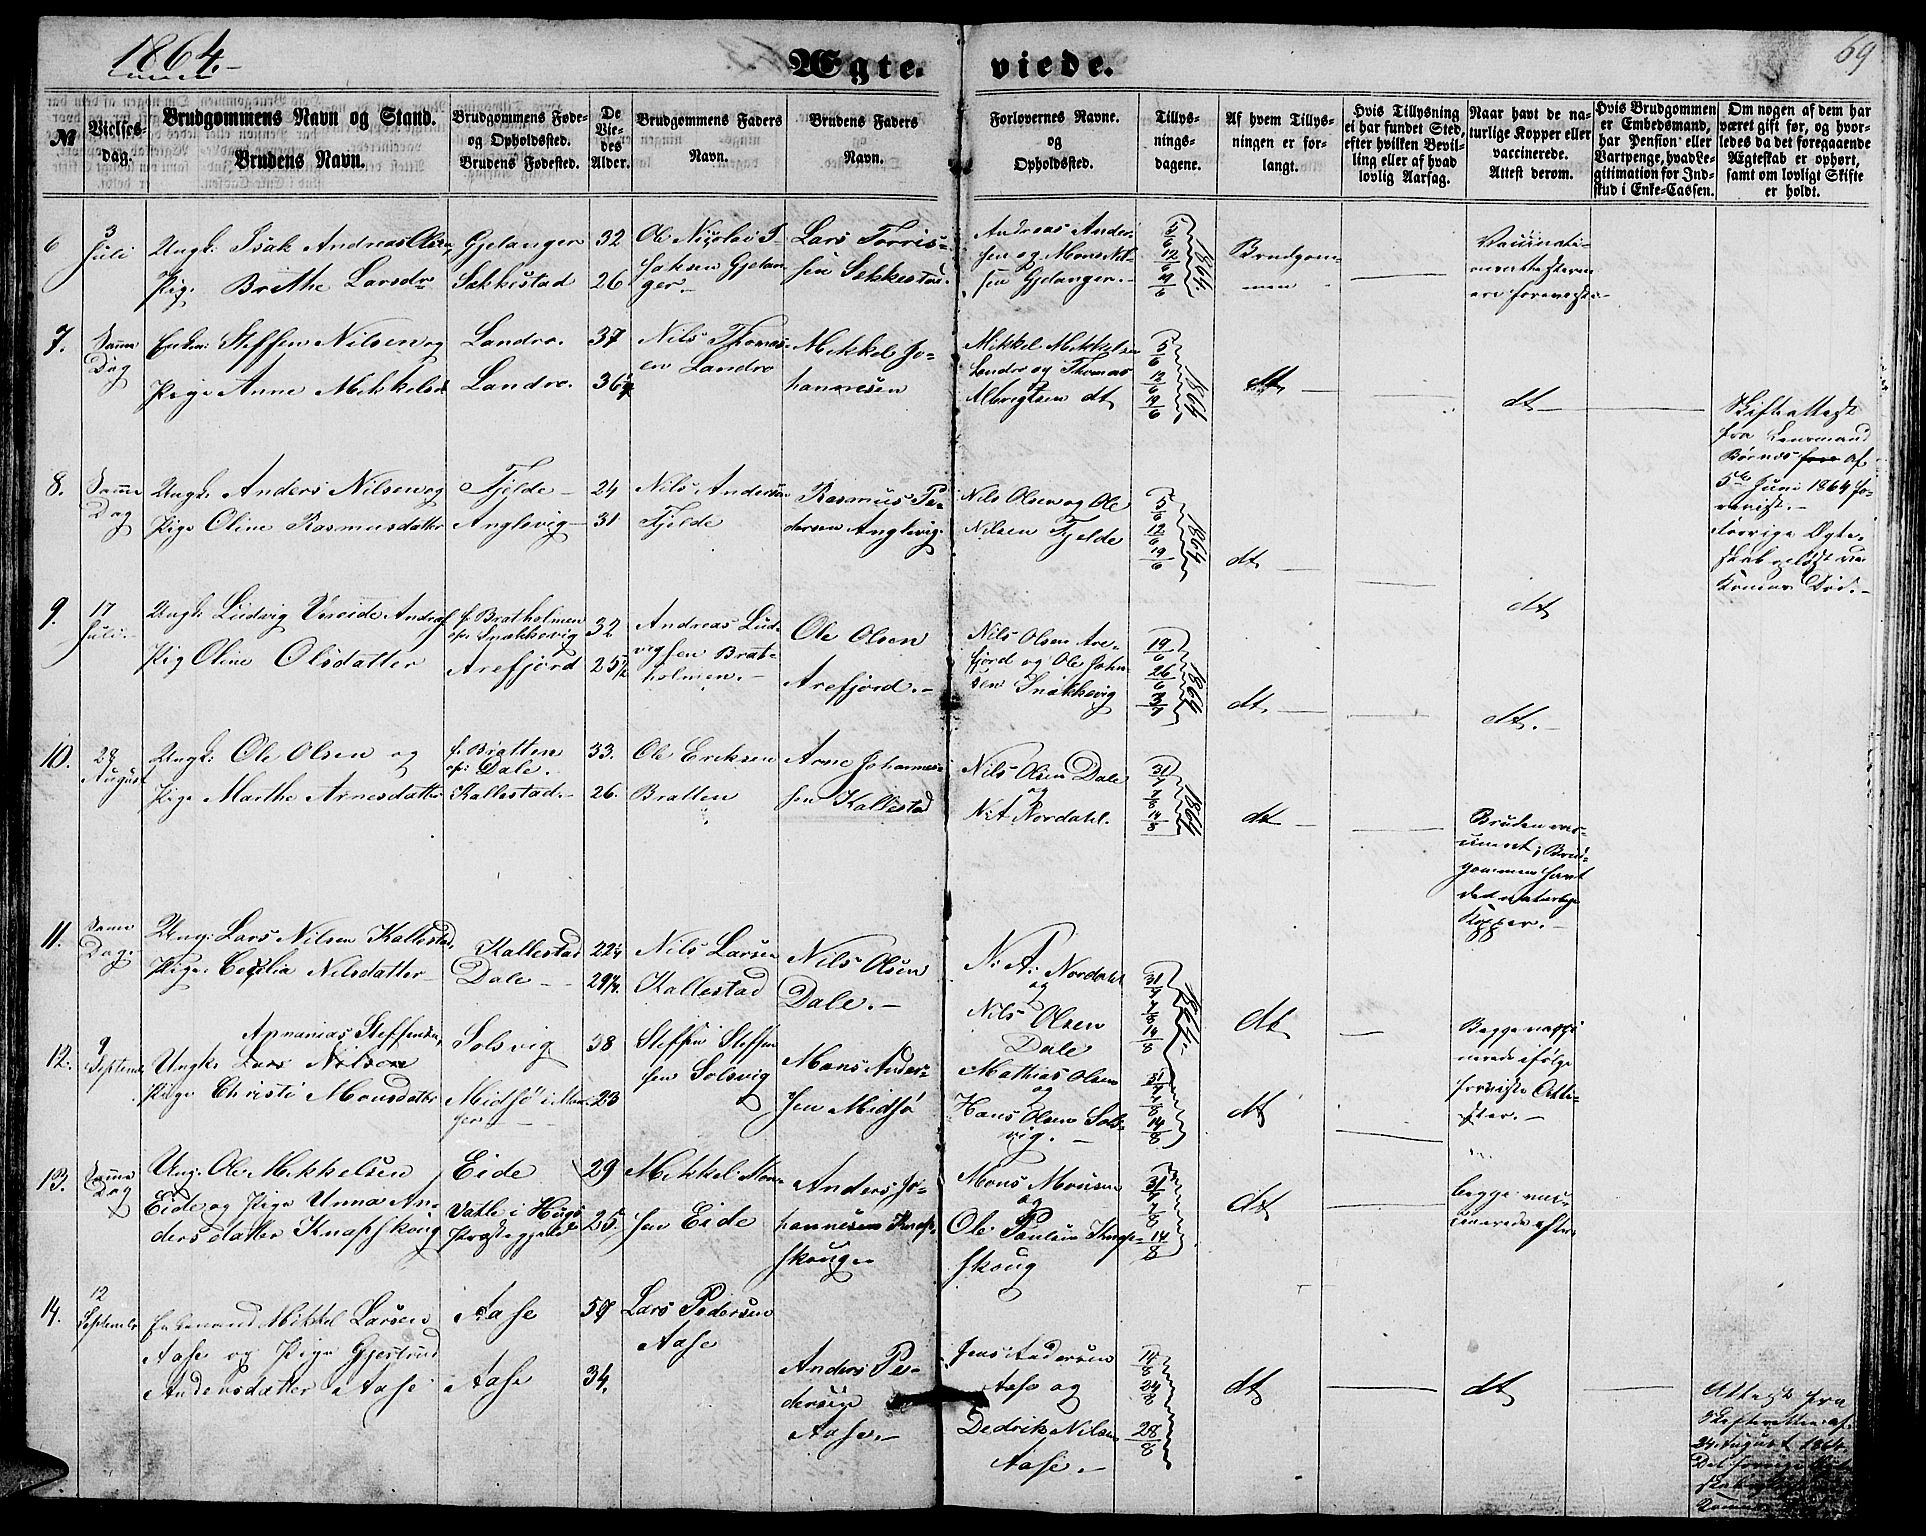 1864.
Ægteviede.
69
№
Vielsesdag.
Brudgommens Navn og Stand.
Brudens Navn.
Brudgommens Føde-
og Opholdssted.
Brudens Fødested.
De
Vie-
des
Alder.
Brudgommens Faders
Navn.
Brudens Faders
Navn.
Forlovernes Navne.
og
Opholdssted.
Tillys-
nings-
dagene.
Af hvem Tillys-
ningen er for-
langt.
Hvis Tillysning
ei har fundet Sted,
efter hvilken Bevil-
ling eller af hvad
lovlig Aarsag.
Naar havt de na-
turlige Kopper eller
vaccinerede.
Attest derom.
Hvis Brudgommen
er Embedsmand,
har Pension eller
Vartpenge, hvad Le-
gitimation for Ind-
skud i Enke-Cassen.
Om nogen af dem har
været gift før, og hvor-
ledes da det foregaaende
Ægteskab er ophørt,
samt om lovligt Skifte
er holdt.
6
3
Juli
Ungk: Isak Andreas Olsen,
Pig: Brithe Larsdr
Gjelanger
Sækkestad
32
26
Ole Nicolai I-
saksen Gjelan-
ger.
Lars Torris-
sen Sekkestad.
Andreas Ander-
sen og Mons Nil-
sen Gjelanger.
5/6
12/6
19/6
1864
Brudgom-
men
7.
Samme
Dag
Enkem: Steffen Nilsen og
Pige Anne Mikkelsd
Landro.
Landro.
37
36
Nils Thomas-
en Landro
Mikkel Jo-
hannesen
Mikkel Mikkelsen
Landro og Thomas
Albrigtsen dt,
5/6
12/6
19/6
1864
dt
dt
Skifteattest
fra Lensmand
Børnes af
5te Juni 1864 fo-
revist.
forrige Ægte-
skab opløst ved
Konens Død.
8.
Samme
Dag
Ungk: Anders Nilsen og
Pige Oline Rasmusdatter
Fjelde
Anglevig
24
31
Nils Andersen
Fjelde
Rasmus Pe-
dersen Anglevig.
Nils Olsen og Ole
Nilsen Fjelde
5/6
12/6
19/6
1864
dt
dt
9.
17
Juli
Ungk: Ludvig Andreas
Pig Oline Olsdatter
f. Bratholmen
op: Snekkevig
Arefjord
32
25½
Andreas Lud-
vigsen Brat-
holmen.
Ole Olsen
Arefjord.
Nils Olsen Are-
fjord og Ole Johan-
sen Snekkevig
19/6
26/6
3/7
1864
dt,
dt.
10.
28
August
Ungk: Ole Olsen og
Pige Marthe Arnesdatter
f. Bratten
op: Dale.
Kallestad.
33.
26.
Ole Eriksen
Bratten
Arne Johannes-
sen Kallestad
Nils Olsen Dale
og
N: A Nordahl.
31/7
7/8
14/8
1864
dt
Bruden vac-
cineret; Brud-
gommen havt
de naturlige
Kopper.
11.
Samme
Dag.
Ung: Lars Nilsen Kallestad,
Pige: Cecilia Nilsdatter
Kallestad
Dale
22¼
29¼
Nils Larsen
Kallestad
Nils Olsen
Dale.
N: A: Nordahl
og
Nils Olsen
Dale
31/7
7/8
14/8
1864.
dt
12.
9
Septem.
Annanias Steffensen,
Ungk: Lars Nilsen
Pige Christi Monsdatter
Solsvig
Midsø i Man-
ger
38
23
Steffen Steffen
sen Solsvig
Mons Ander-
sen Midsø
Mathias Olsen
og
Hans Olsen Sols-
vig.
31/7
7/8
14/8
dt
Begge vacci-
nerede ifølge
forviste Atte-
ster.
13.
Samme
Dag
Ung: Ole Mikkelsen
Eide og Pige Unna An-
dersdatter Knapskoug
Eide
Vatle i Hougs
Præstegjeld
29
25.
Mikkel Mon-
sen Eide
Anders Jo-
hannesen Knap-
skoug.
Mons Monsen
og
Ole Paulsen Knap-
skoug
31/7
7/8
14/8
dt
begge vac-
cinerede
14.
12
September
Enkemand Mikkel Larsen
Aase og Pige Gjertrud
Andersdatter Aase
Aase
Aase
34.
Lars Pedersen
Aase
Anders Pe-
dersen
Aase.
Jens Andersen
Aase og
Dedrik Nilsen
Aase.
14/8
24/8
28/8
dt
dt
Attest fra
Skifteretten af
24 August 1864.